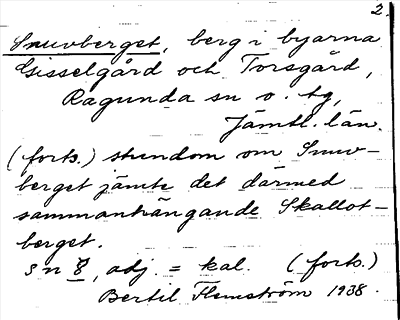 2.
Snuvberget, berg i byarna
Gisselgård och Torsgård,
Ragunda sn o. tg,
Jämtl. län.
(forts.) stundom om Snuv-
berget jämte det därmed
sammanhängande Skallot-
berget.
adj. = kal. (forts.)
Bertil Flemström 1938.